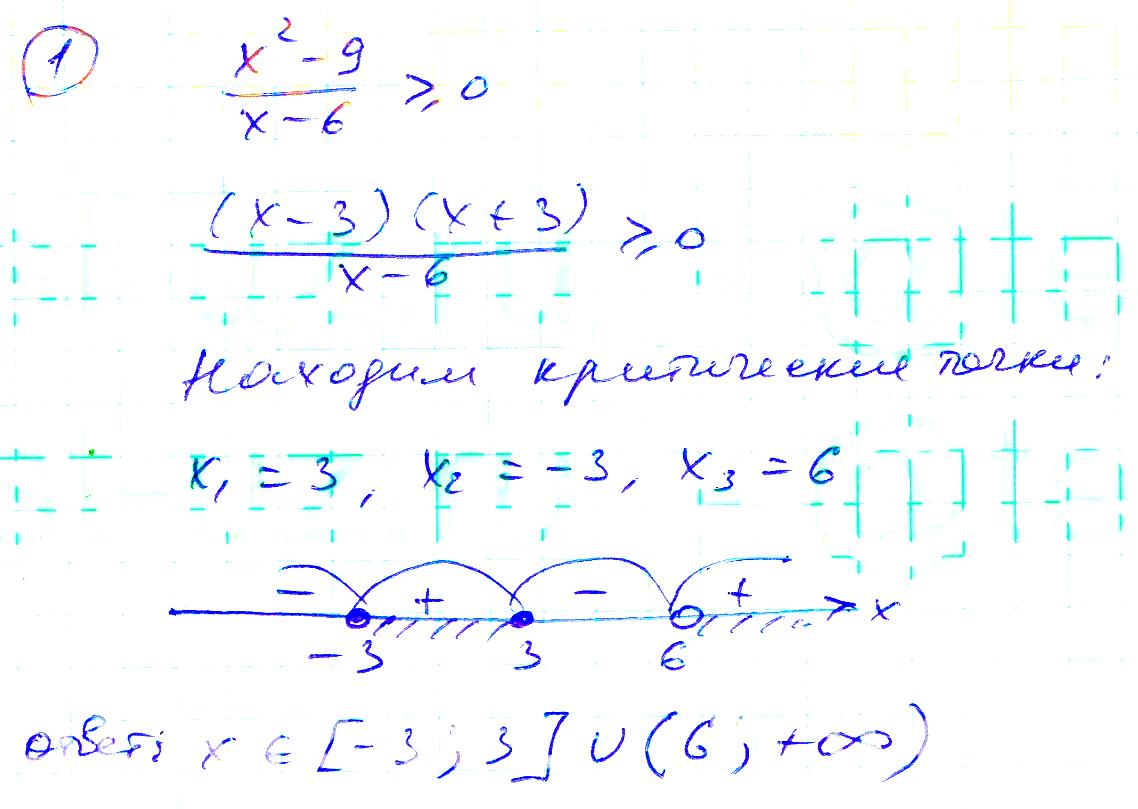 1
x² - 9
x - 6
⩾ 0
(x - 3)(x + 3)
x - 6
⩾ 0
Находим критические точки:
x₁ = 3, x₂ = -3, x₃ = 6
- + - +
x
-3 3 6
ответ: x ∈ [-3; 3] ∪ (6; +∞)